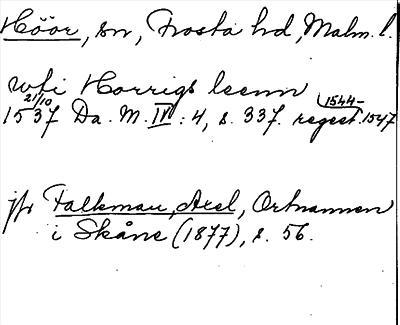 Höör, sn, Frosta hd, Malm. l.
wti Horrigs leenn
21/10 1544-
1537 Da. M. IV : 4, s. 337. regest. 1547
jfr Falkman, Axel, Ortnamnen
i Skåne (1877), s. 56.